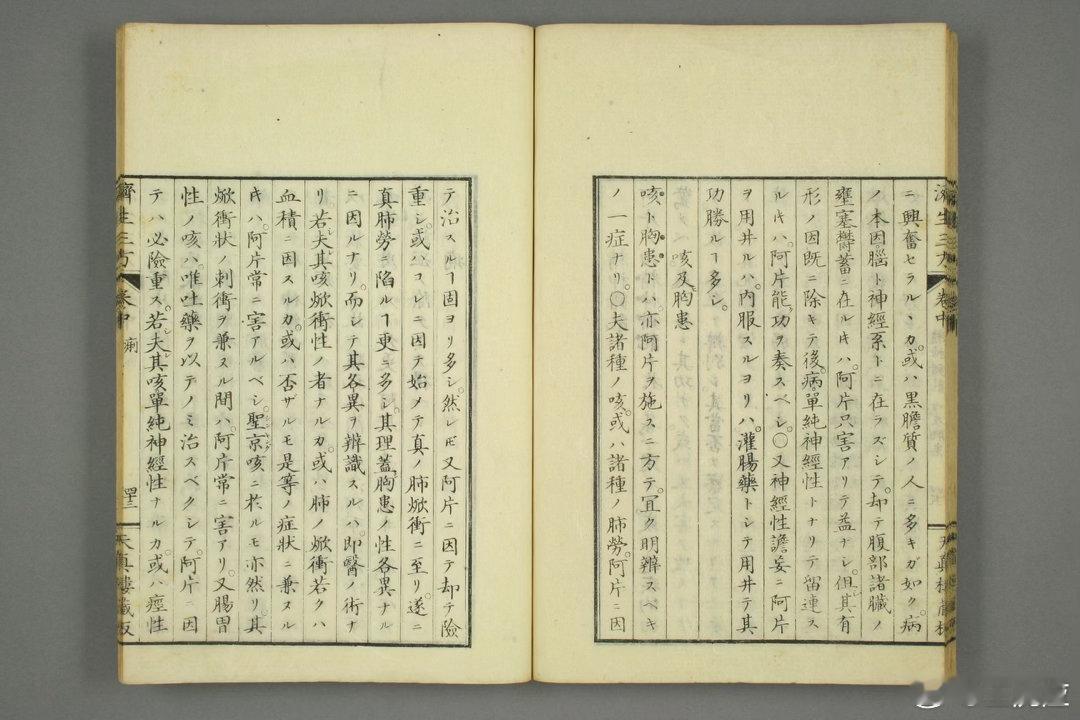 ニ興奮セラル丶カ。或ハ黒膽質ノ人ニ多キガ如ク。病
ノ本因。腦ト神經系トニ在ヲズシテ。却テ腹部諸臓ノ
壅塞鬱蓄ニ在ルキハ。阿片只害アリテ益ナシ。但其有
形ノ因既ニ除キテ後。病單純神經性トナリテ留連ス
ルキハ。阿片能功ヲ奏スベシ。〇又神經性譫妄ニ阿片
ヲ用井ルハ。内服スルヨリハ。灌腸藥トシテ用井テ其
功勝ルヿ多シ。
咳及胸患
咳ト胸患トハ。亦阿片ヲ施スニ方テ。冝ク明辨スベキ
ノ一症ナリ。〇夫諸種ノ咳。或ハ諸種ノ肺勞。阿片ニ因
濟生三方 卷中
テ治スルヿ固ヨリ多シ。然レ𪜈又阿片ニ因テ却テ險
重シ。或ハコレニ因テ始メテ真ノ肺焮衝ニ至リ。遂ニ
真肺勞ニ陷ルヿ更ニ多シ。其理蓋胸患ノ性各異ナル
ニ因ルナリ。而シテ其各異ヲ辨識スルハ。即醫ノ術ナ
リ若夫其咳焮衝性ノ者ナルカ。或ハ肺ノ焮衝若クハ
血積ニ因スルカ。或ハ否ザルモ是等ノ症状ニ兼スル
キハ。阿片常ニ害アルベシ。聖京咳ニ於ルモ亦然リ。其
焮衝状ノ刺衝ヲ兼スル間ハ。阿片常ニ害アリ。又腸胃
性ノ咳ハ。唯吐藥ヲ以テノミ治スベクシテ。阿片ニ因
テハ必險重ス。若夫其咳單純神經性ナルカ。或ハ痙性
濟生三方 卷中 痢 四十三 天真樓藏板